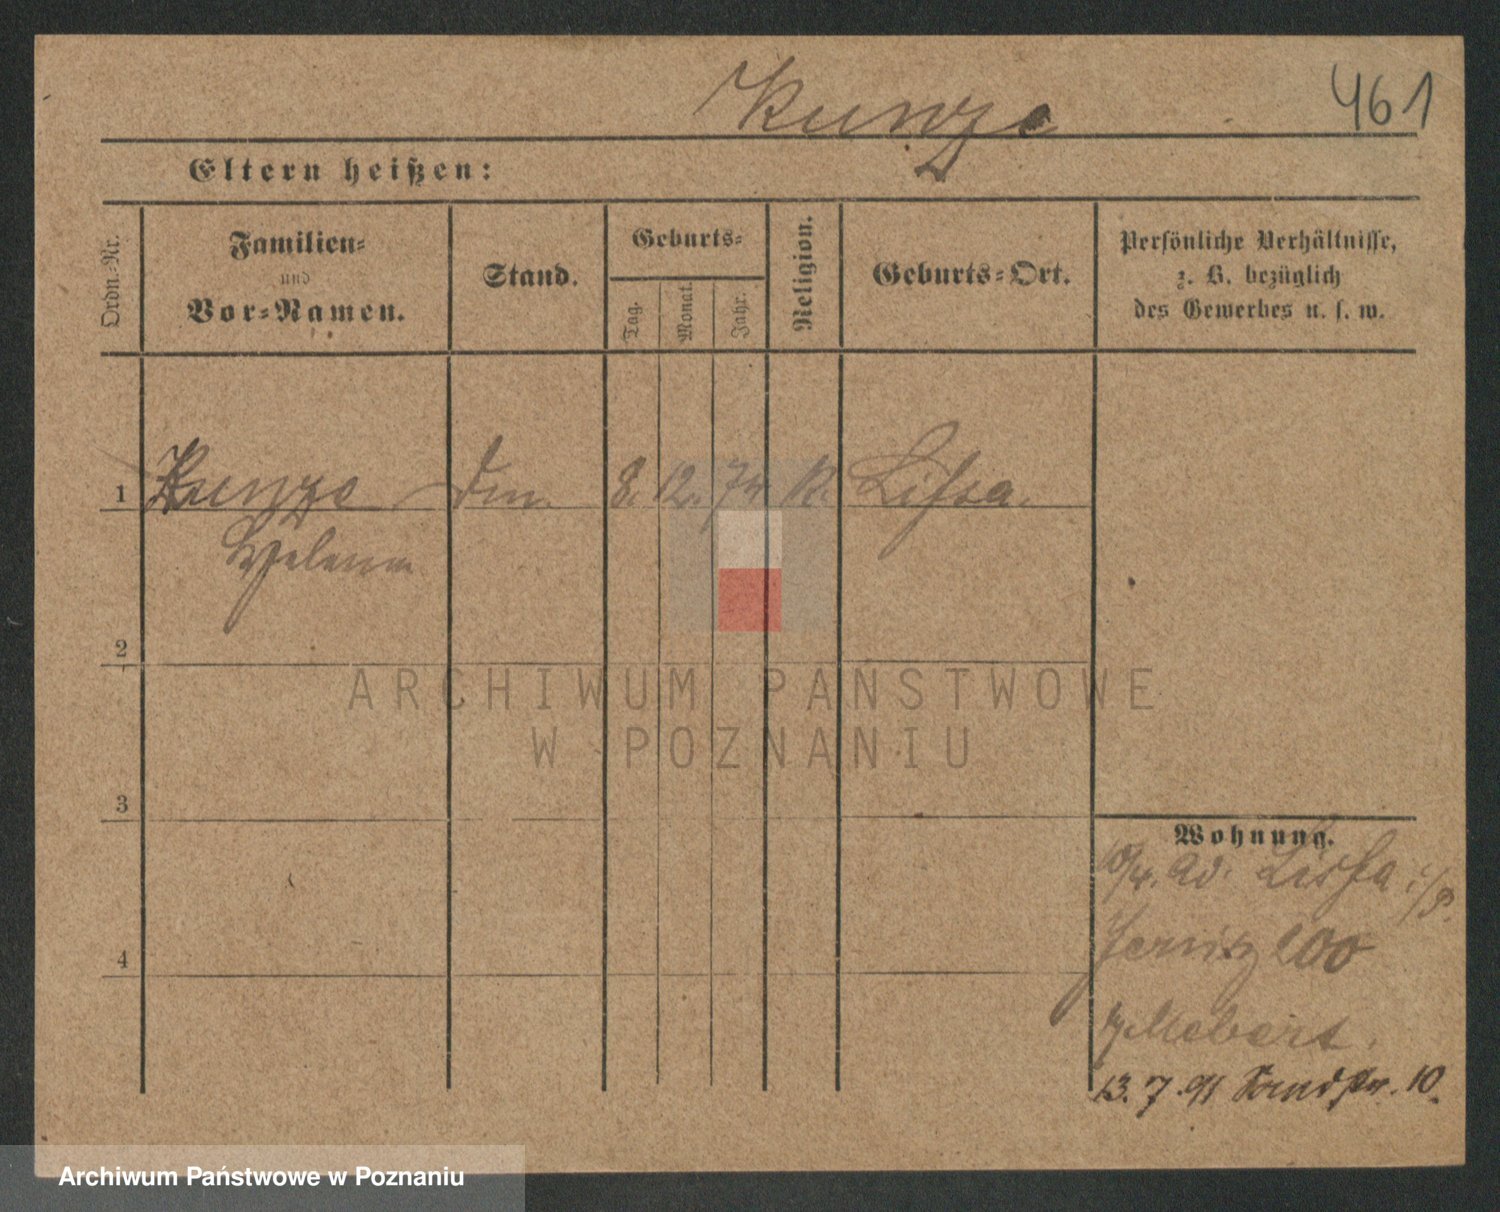 Kunze
461
Eltern heißen:
Ordn.-Nr.
Familien-
und
Vor-Namen.
Stand.
Geburts-
Tag.
Monat.
Jahr.
Religion.
Geburts-Ort.
Persönliche Verhältnisse,
z. B. bezüglich
des Gewerbes u. s. w.
1
Kunze
8. 12. 74 K. Lissa.
2
3
4
ARCHIWUM PAŃSTWOWE
W POZNANIU
Wohnung.
Lissa i/P.
13. 7. 91 Sandstr. 10.
Archiwum Państwowe w Poznaniu